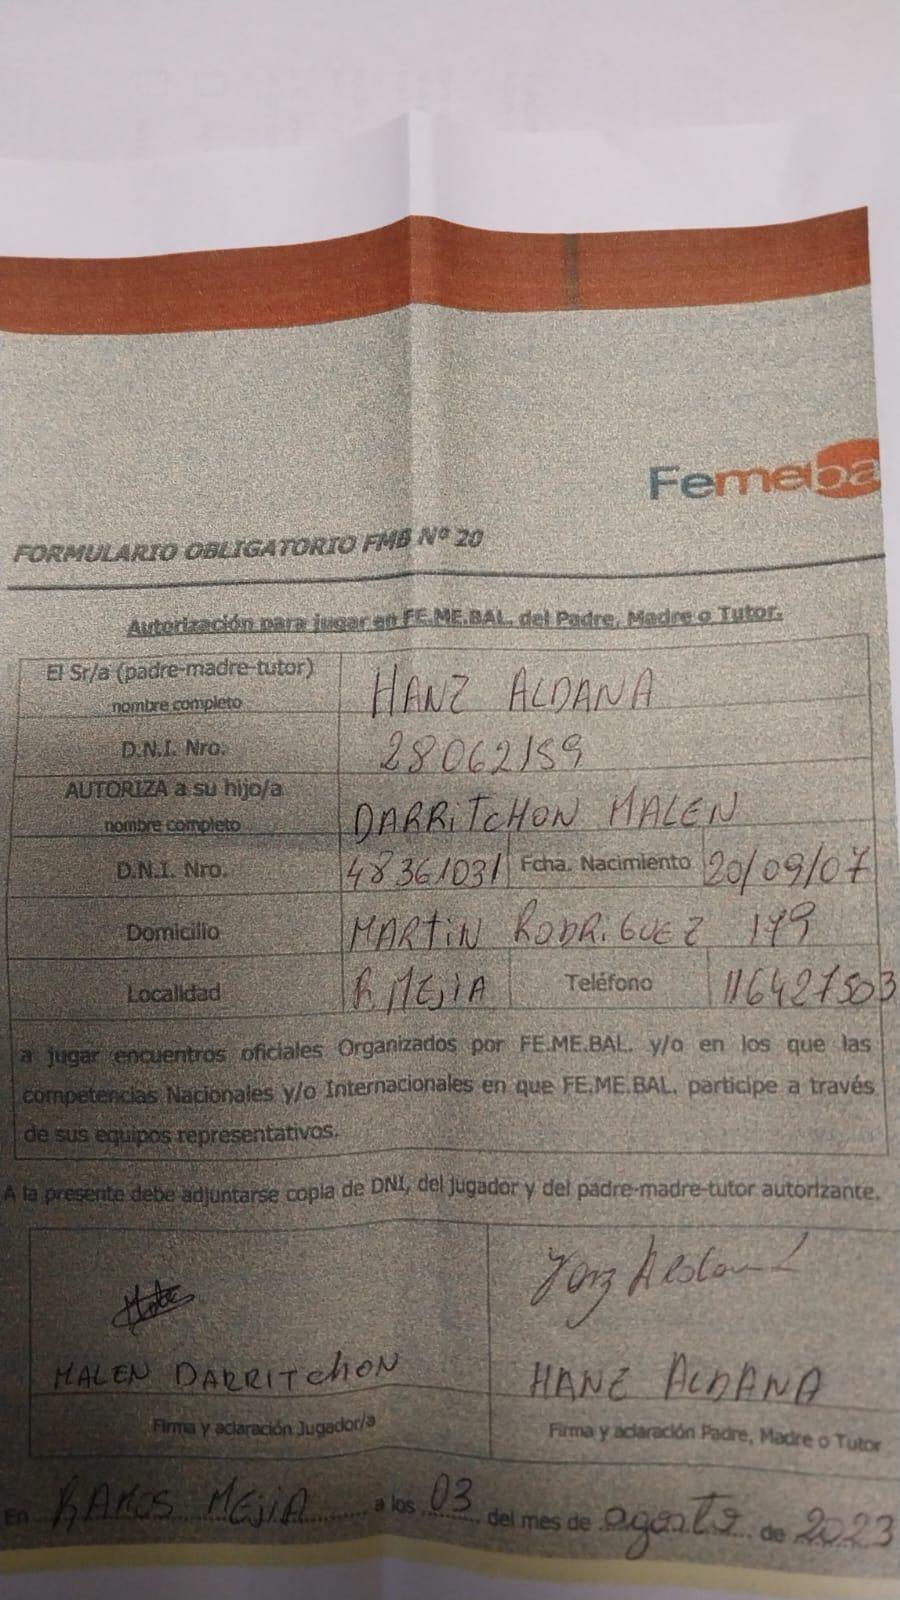 Femeba
FORMULARIO OBLIGATORIO FMB Nº 20
Autorización para jugar en FE.ME.BAL. del Padre, Madre o Tutor.
El Sr/a (padre-madre-tutor) HANZ ALDANA
nombre completo
D.N.I. Nro. 28062159
AUTORIZA a su hijo/a DARRITCHON MALEN
nombre completo
D.N.I. Nro. 48361031 Fcha. Nacimiento 20/09/07
Domicilio MARTIN RODRIGUEZ 179
Localidad R. MEJIA Teléfono 1164217503
a jugar encuentros oficiales Organizados por FE.ME.BAL. y/o en los que las
competencias Nacionales y/o Internacionales en que FE.ME.BAL. participe a través
de sus equipos representativos.
A la presente debe adjuntarse copia de DNI, del jugador y del padre-madre-tutor autorizante.
MALEN DARRITCHON HANZ ALDANA
Firma y aclaración Jugador/a Firma y aclaración Padre, Madre o Tutor
En RAMOS MEJIA a los 03 del mes de agosto de 2023